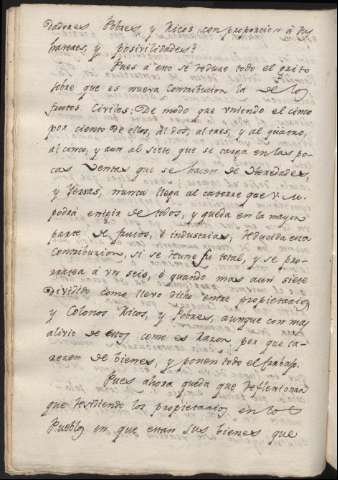 Pobres, y Ricos con proporcion á sus
haveres, y posivilidades?
Pues á esto se reduce todo el grito
sobre que es nueva Contribucion la de los
frutos Civiles; De modo que uniendo el cinco
por ciento de ellos, al dos, al tres, y al quatro,
al cinco, y aun al siete que se carga en las po-
cas Ventas que se hacen de Heredades,
y tierras, nunca llega al catorce que
podrá exigir de todos, y queda en la mayor
parte de frutos, è industrias, reducida esta
Contribucion, si se total, y se pro-
rratea á un seis, ó quando mas aun siete
dividido como llevo dicho entre propietarios
y Colonos Ricos, y Pobres, aunque con mas
alivio de estos como es razon, por que ca-
recen de bienes, y ponen todo el trabajo.
Pues ahora queda que reflexionar
que residiendo los propietarios en los
Pueblos en que estan sus bienes que